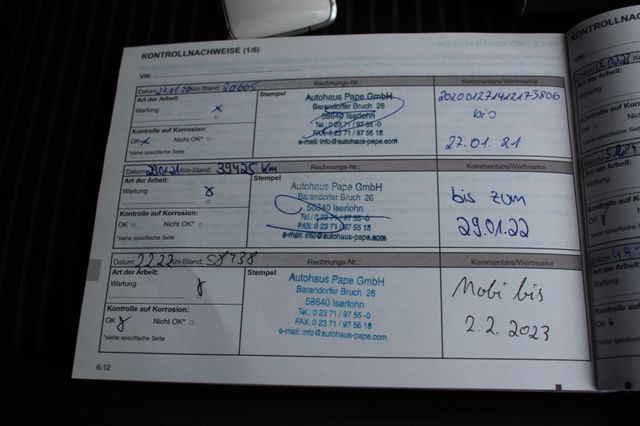 KONTROLLNACHWEISE (1/6)
VIN:
Datum: 27.01.20 Km-Stand: 20665 Rechnungs-Nr.: Kommentare/Wertmarke
Art der Arbeit: Stempel Autohaus Pape GmbH
Wartung x Barendorfer Bruch 26
58640 Iserlohn
Kontrolle auf Korrosion: Tel.: 0 23 71 / 97 55 -0 bis
OK x Nicht OK* FAX: 0 23 71 / 97 55 18 27.01.21
*siehe spezifische Seite e-mail: info@autohaus-pape.com
Km-Stand: 39425 Km Rechnungs-Nr.: Kommentare/Wertmarke
Art der Arbeit: Stempel Autohaus Pape GmbH
Wartung x Barendorfer Bruch 26 bis zum
58640 Iserlohn
Kontrolle auf Korrosion: Tel.: 0 23 71 / 97 55 -0 29.01.22
OK Nicht OK* FAX: 0 23 71 / 97 55 18
*siehe spezifische Seite e-mail: info@autohaus-pape.com
Datum: 2.2.22 Km-Stand: 58738 Rechnungs-Nr.: Kommentare/Wertmarke
Art der Arbeit: Stempel Autohaus Pape GmbH
Wartung x Barendorfer Bruch 26 Mobi bis
58640 Iserlohn
Kontrolle auf Korrosion: Tel.: 0 23 71 / 97 55 -0 2.2.2023
OK x Nicht OK* FAX: 0 23 71 / 97 56 18
*siehe spezifische Seite e-mail: info@autohaus-pape.com
6.12